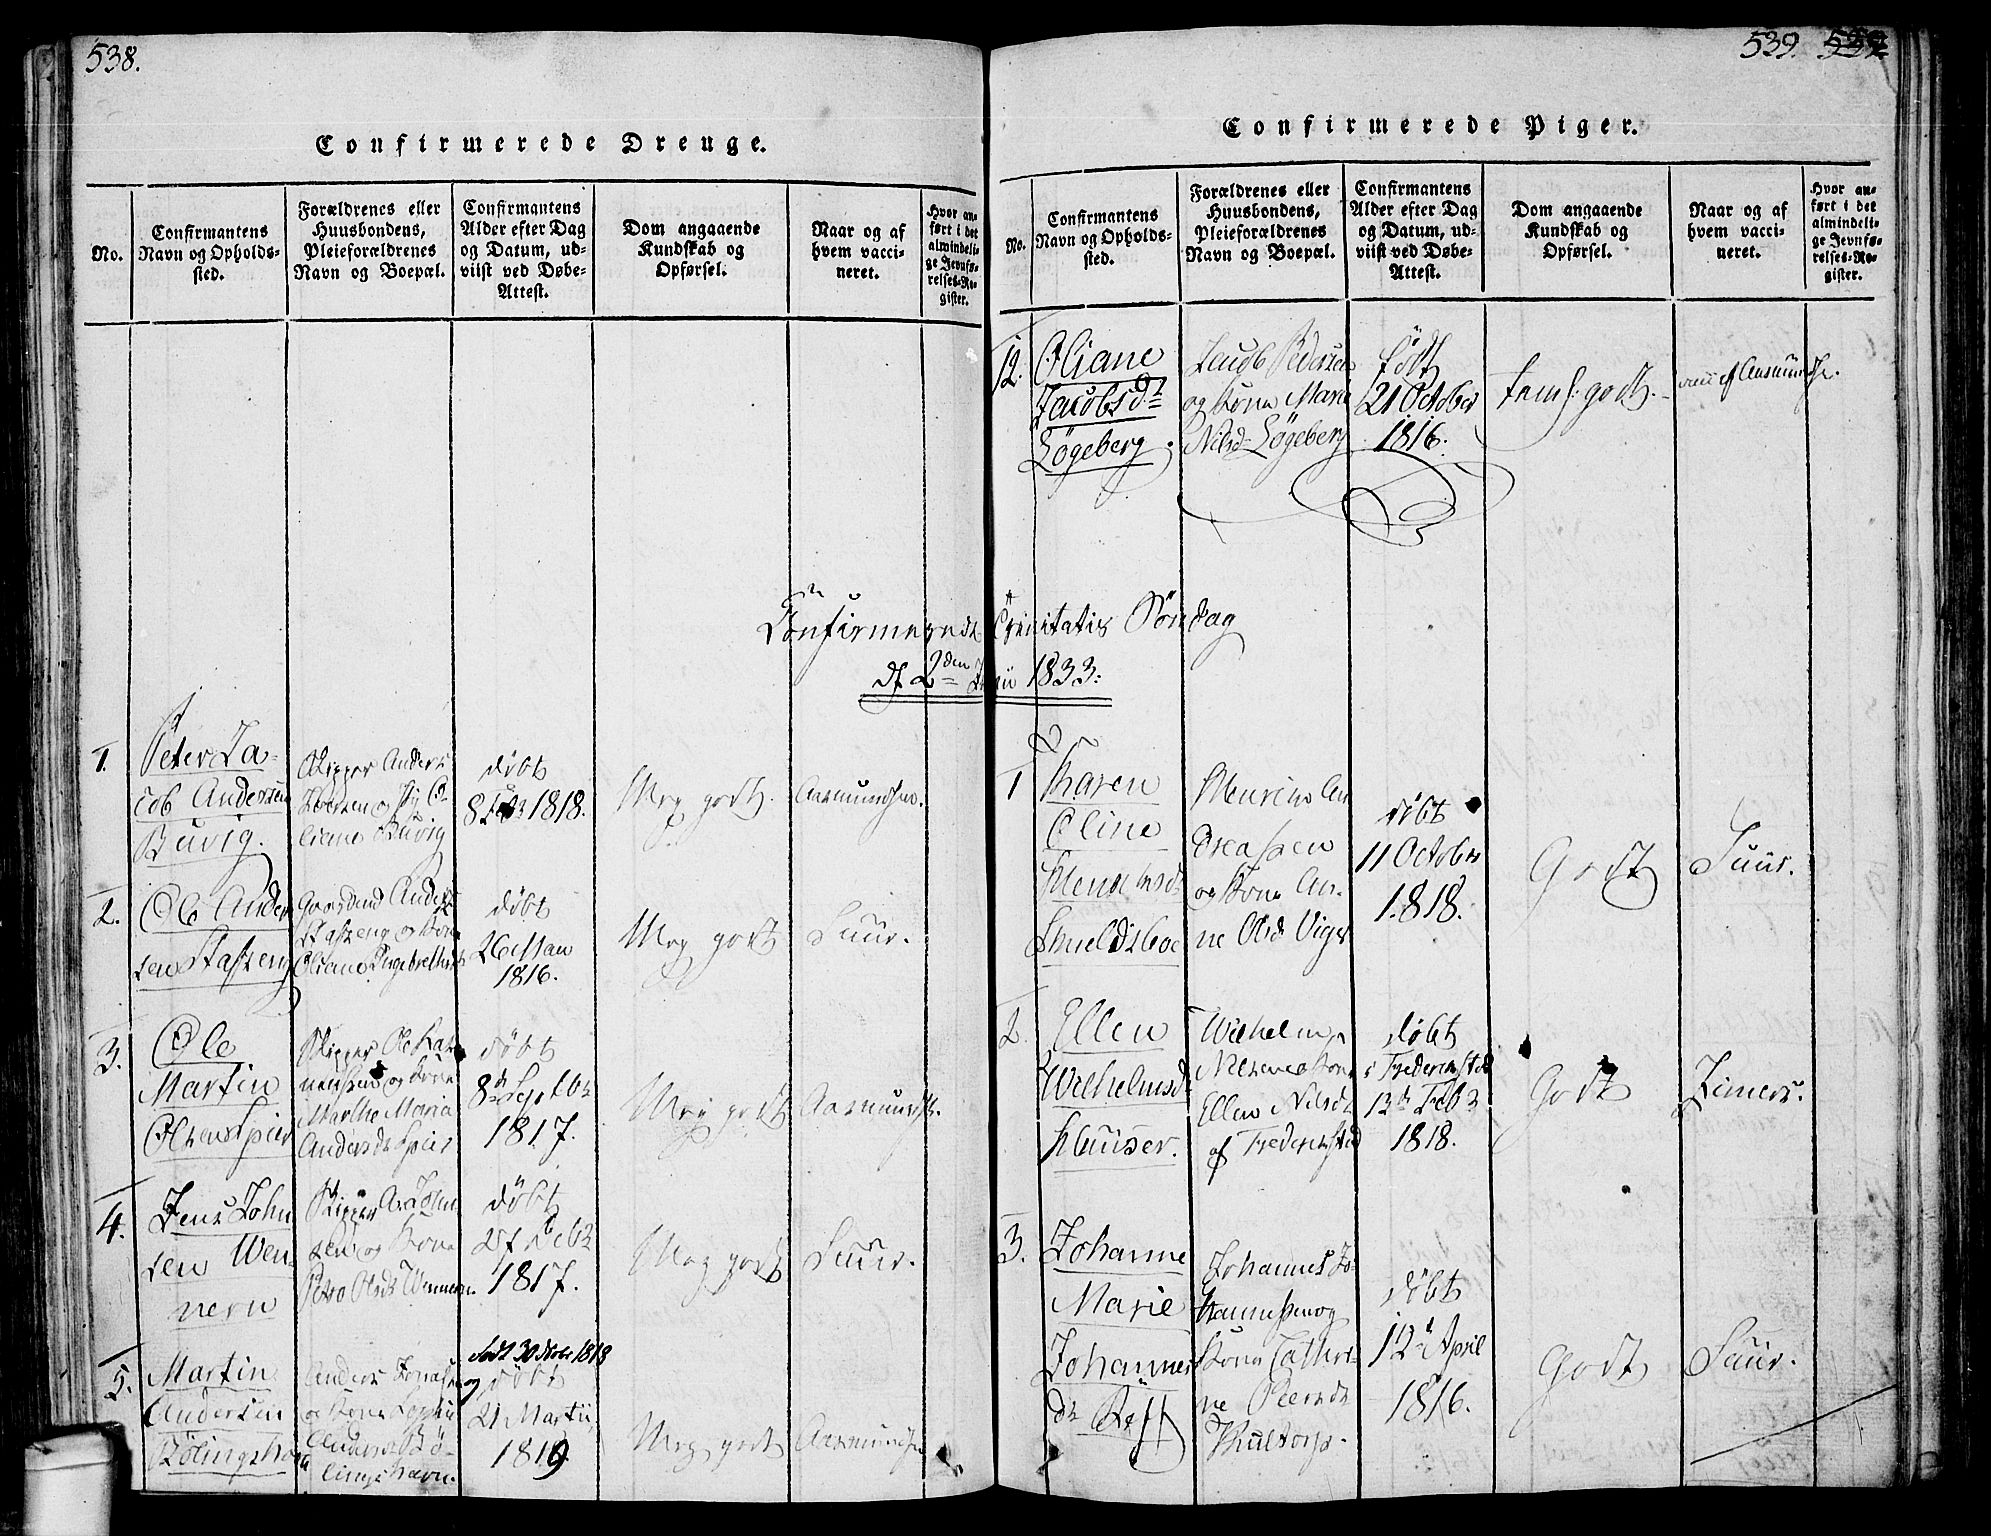 538.
Confirmerede Drenge.
No.
Confirmantens
Navn og Opholds-
sted.
Forældrenes eller
Huusbondens,
Pleieforældrenes
Navn og Boepæl.
Confirmantens
Alder efter Dag
og Datum, ud-
viist ved Døbe-
Attest.
Dom angaaende
Kundskab og
Opførsel.
Naar og af
hvem vacci-
neret.
Hvor an-
ført i det
almindeli-
ge Jevnfø-
relses-Re-
gister.
Confirmerede Trinitatis Søndag
d. 2den Juni 1833:
1.
Peter Ja-
cob Andersen
Buvig.
Skipper Anders
og
liane Buvig
døbt
8 Feb 1818.
Meg godt.
Aasmundsen.
2.
Ole Ander
sen Stafseng
Gaardmd Anders
Stafseng og Kone
Oliane Engebretsd
døbt
26 Mai
1816.
Meg godt
Suur.
3.
Ole
Martin
Olsen Spier
Skipper Ole
og Kone
Marthe Maria
Andersdr Spier
døbt
8de Septbr
1817.
Meg godt
Aasmunds.
4.
Jens John
sen Wen-
nern
Skipper John
sen og Kone
Olsdr Wennern.
døbt
1817.
Meg godt
Suur.
5.
Martin
Andersen
Bölingshavn
Anders Jonasen
og Kone Sophie
Bö-
lingshavn.
født 30 Octobr 1818
og døbt
21 Martii
1819.
Meg godt
Aasmundsen
539. 539
Confirmerede Piger.
No.
Confirmantens
Navn og Opholds-
sted.
Forældrenes eller
Huusbondens,
Pleieforældrenes
Navn og Boepæl.
Confirmantens
Alder efter Dag
og Datum, ud-
viist ved Døbe-
Attest.
Dom angaaende
Kundskab og
Opførsel.
Naar og af
hvem vacci-
neret.
Hvor an-
ført i det
almindeli-
ge Jevnfø-
relses-Re-
gister.
12.
Oliane
Jacobsdr
Løgeberg.
Jacob Pedersen
og Kone Marie
Nilsd Løgeberg
født
21 October
1816.
temf: godt.
vacc af Aasmundsen.
1
Karen
Oline
An
dreassen
og Kone An-
ne Olsd Viger
døbt
11 October
1818.
Godt
Suur.
2.
Ellen
Wilhelmsdr
Wilhelm
Ellen Nilsdr
af Frederikstad
døbt
i Frederikstad
12te Feb
1818.
Godt
Zimers.
3.
Johanne
Marie
Johannes
dr
Johannes Jo-
hannessen og
Kone Cathri-
ne Peersdr
døbt
12te April
1816.
Godt
Suur.